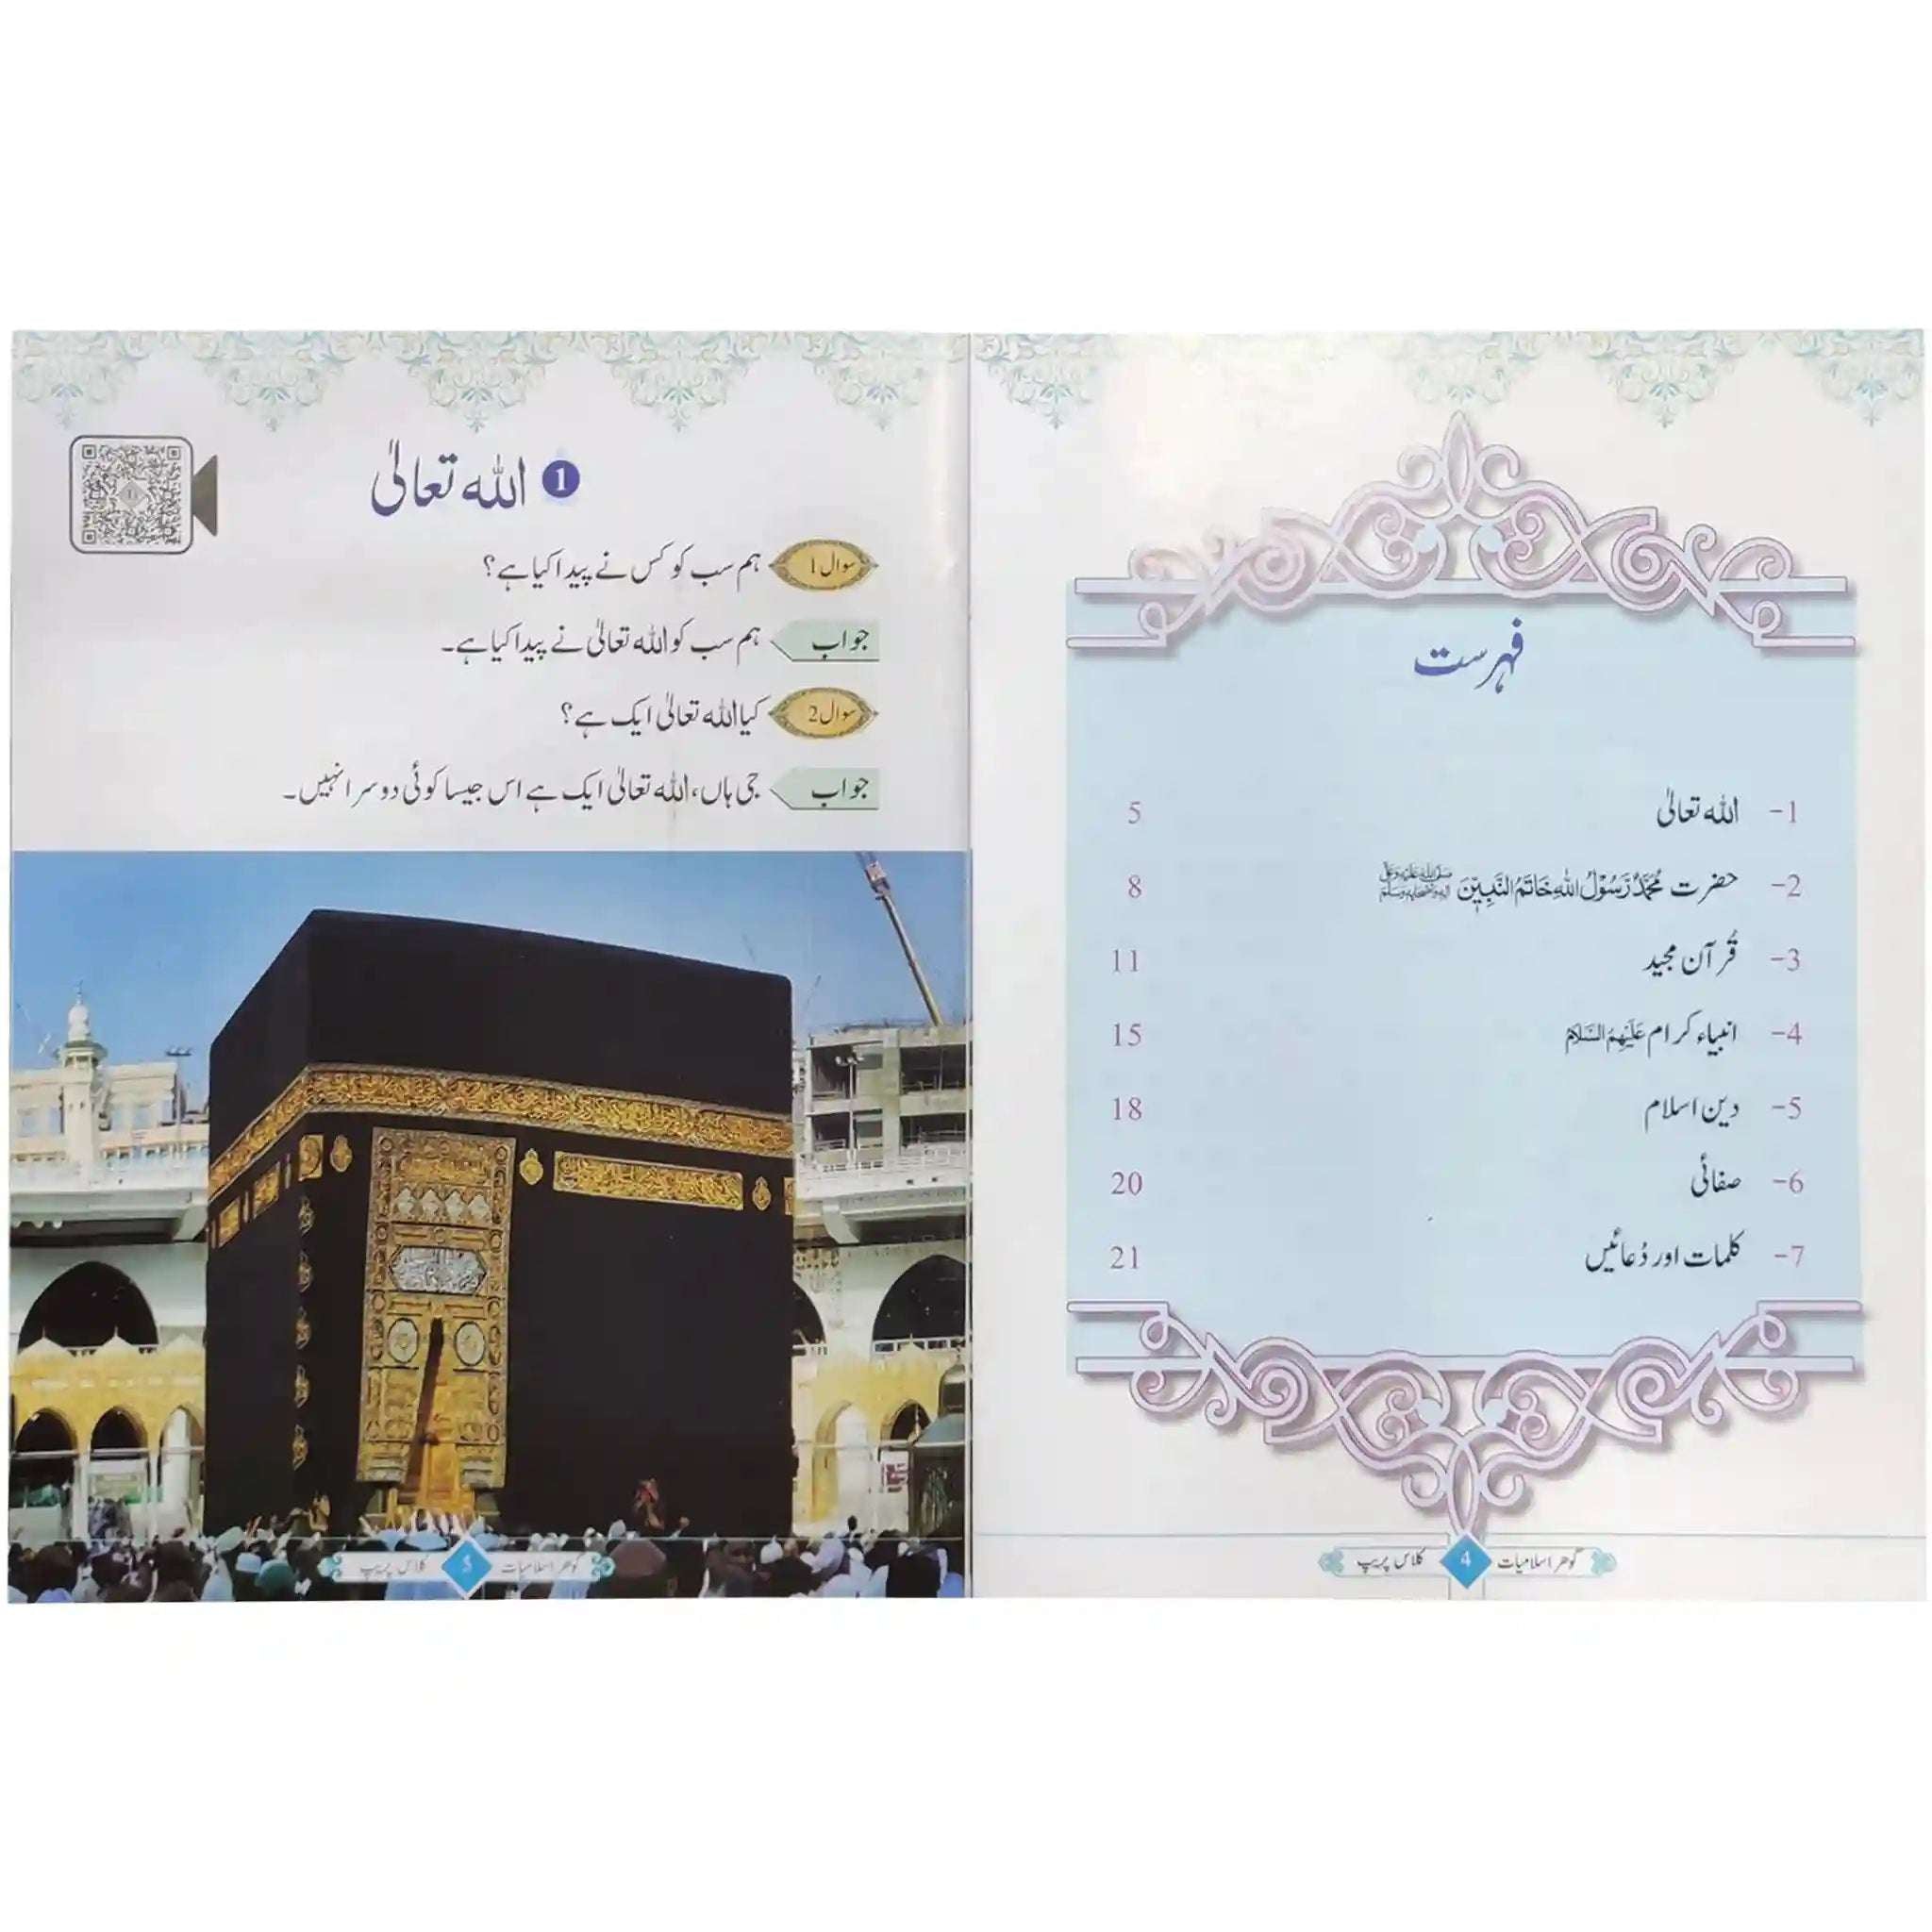 فہرست
1- اللہ تعالیٰ 5
2- حضرت مُحَمَّدٌ رَّسُوْلُ اللہِ خَاتَمُ النَّبِیّٖنَ صَلَّی اللہُ عَلَیْہِ وَعَلٰی آلِہٖ وَاَصْحَابِہٖ وَسَلَّمَ 8
3- قُرآن مجید 11
4- انبیاء کرام عَلَیْہِمُ السَّلَام 15
5- دین اسلام 18
6- صفائی 20
7- کلمات اور دُعائیں 21
گوھر اسلامیات 4 کلاس پریپ
1 اللہ تعالیٰ
سوال 1 ہم سب کو کس نے پیدا کیا ہے؟
جواب ہم سب کو اللہ تعالیٰ نے پیدا کیا ہے۔
سوال 2 کیا اللہ تعالیٰ ایک ہے؟
جواب جی ہاں، اللہ تعالیٰ ایک ہے اس جیسا کوئی دوسرا نہیں۔
گوھر اسلامیات 5 کلاس پریپ